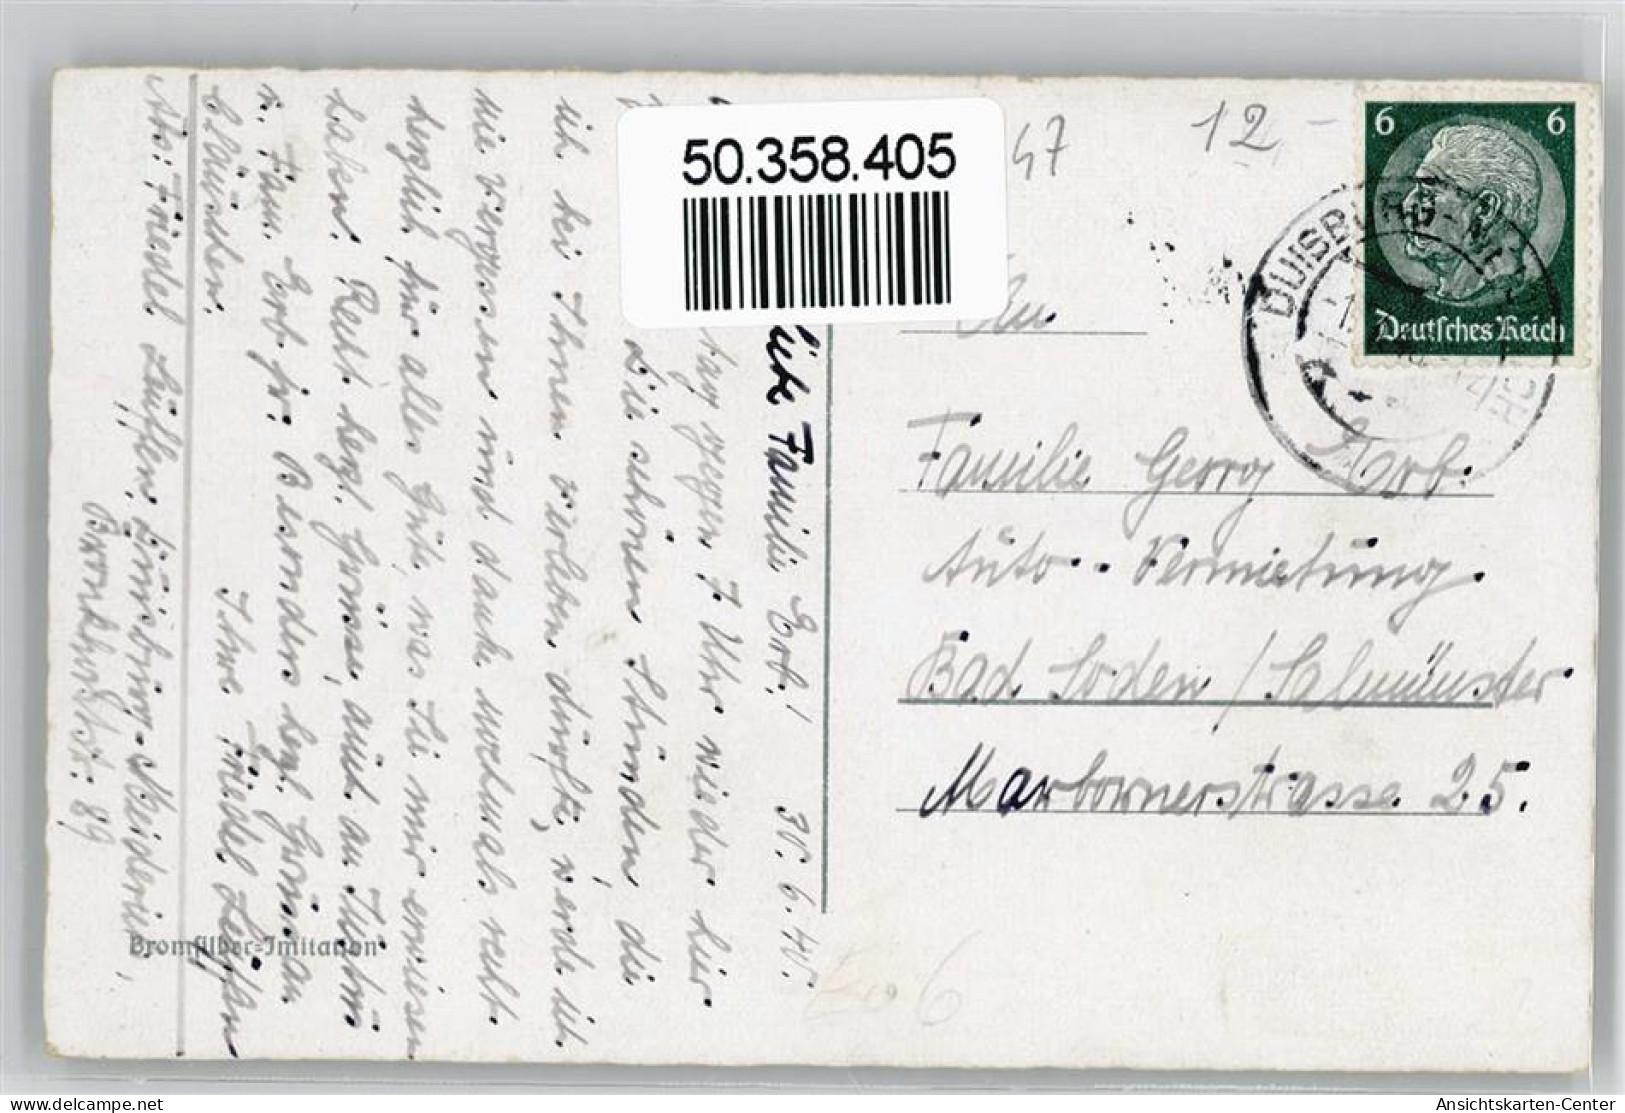 50.358.405
47
12 -
6 6
Deutsches Reich
DUISBURG
An
Familie Georg Erb.
Auto-Vermietung.
Bad Soden / Salmünster
Marbornerstrasse 25.
liebe Familie Erb! 30. 6. 40.
tag gegen 7 Uhr wieder hier
Die schönen Stunden die
ich bei Ihnen verleben durfte, werde ich
nie vergessen und danke nochmals recht
herzlich für alles Gute, was Sie mir erwiesen
haben. Recht herzl. Grüsse, auch an
u. Fam. Erb jr. Besonders herzl. Gruss an
Clärchen.
Ihre Friedel
Abs: Friedel Duisburg-Meiderich,
Bronkhorststr: 89
Bromsilber-Imitation
6
Ansichtskarten-Center
the-bestof.com